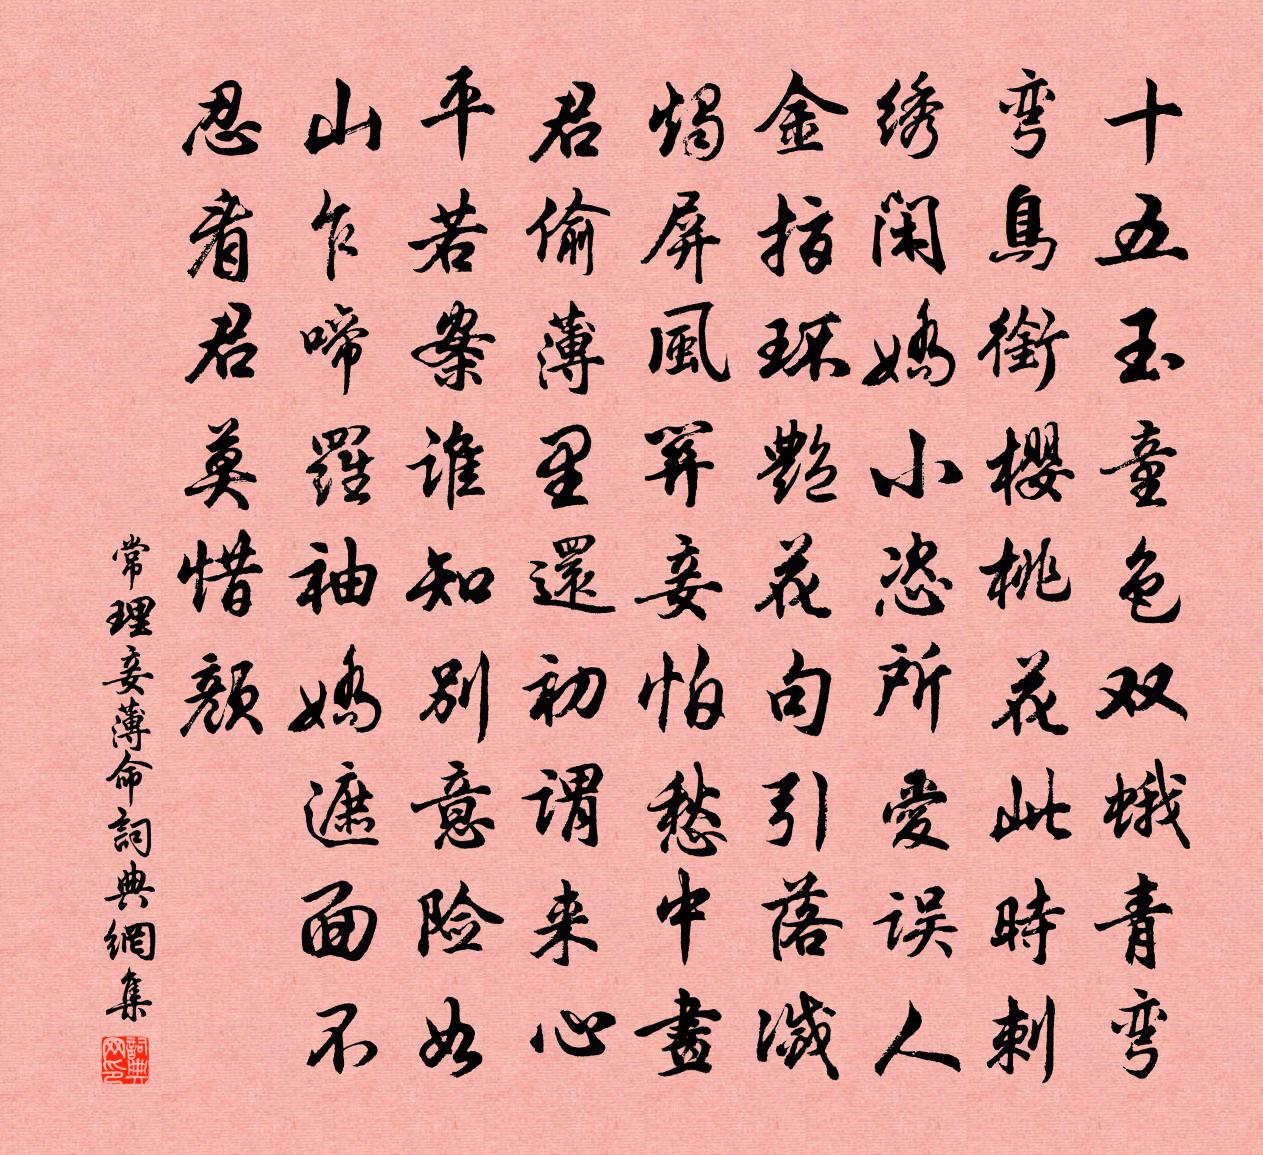 十五玉童色双蛾青弯
弯鳥銜櫻桃花此時刺
绣闲嬌小恣所愛误人
金指环艷花句引落滅
燭屏風関妾怕愁中畫
君偷薄里還初谓来心
平若案谁知别意险如
山乍啼羅袖嬌遮面不
忍看君莫惜颜
常理妾薄命詞典網集
詞典网印